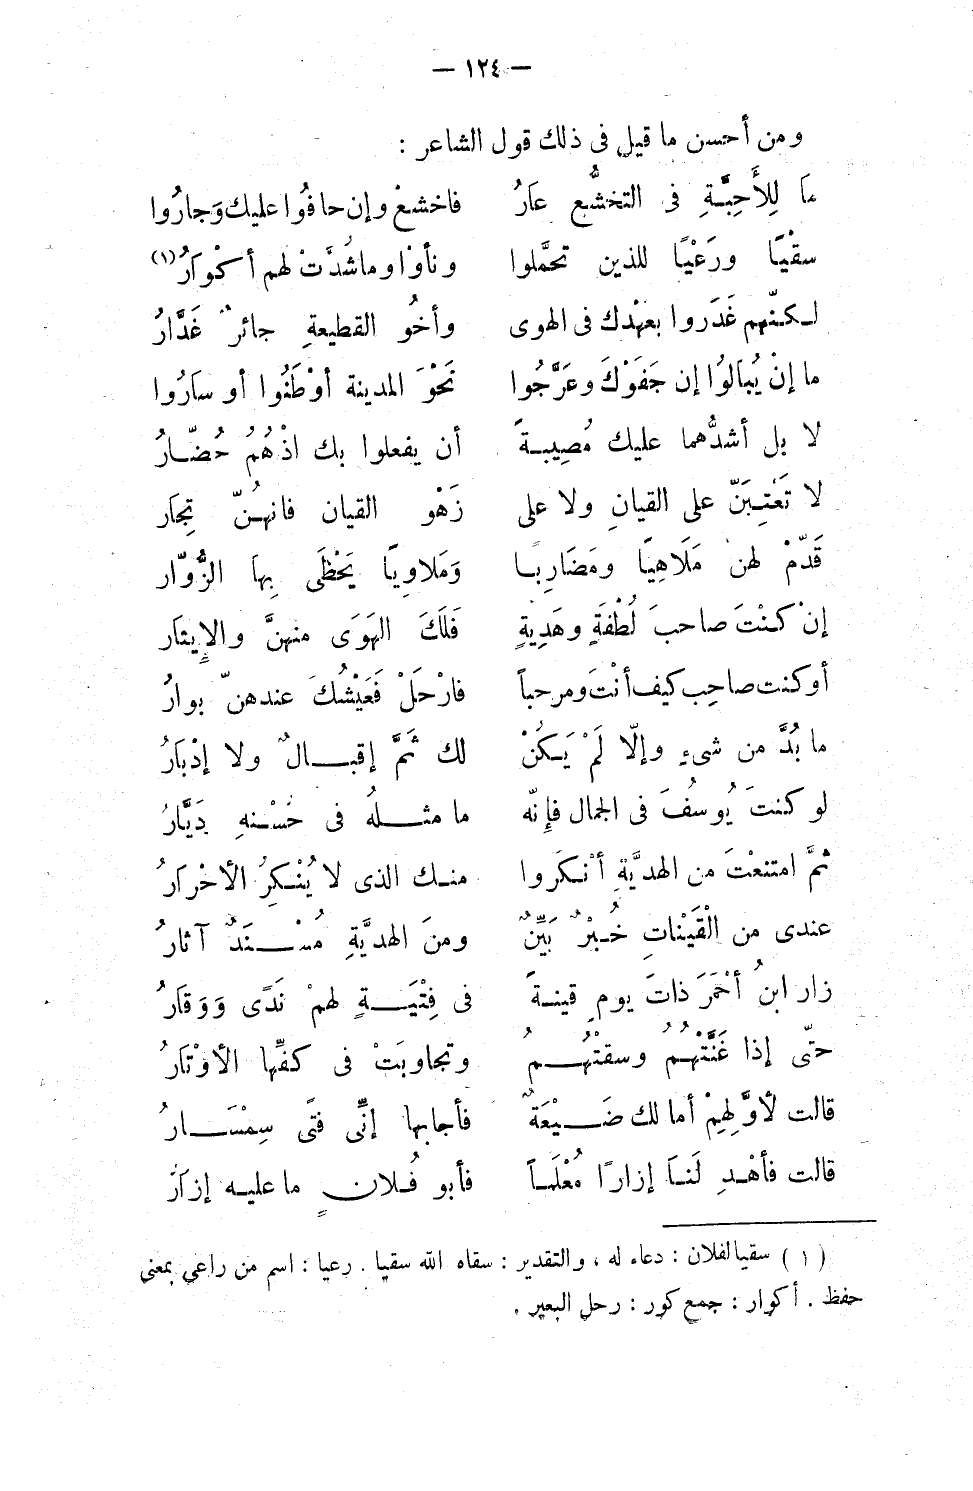 — ١٢٤ —
ومن أحسن ما قيل فى ذلك قول الشاعر :
مَا لِلأَحِبَّةِ فى التخشُّع عَارُ فاخشعْ وإن حافُوا عليك وَجارُوا
سقْيًا ورَعْيًا للذين تحمَّلوا ونأوْا وما شُدَّتْ لهم أكْوارُ (١)
لـكنّهم غَدَروا بعهْدك فى الهوى وأخُو القطيعةِ جائرٌ غَدَّارُ
ما إنْ يُبَالوُا إن جَفَوْكَ وعَرَّجُوا نَحْوَ المدينة أوْطَنُوا أو سارُوا
لا بل أشدُّهما عليك مُصِيبةً أن يفعلوا بك اذْهُمُ حُضّارُ
لا تَعْتِبَنّ على القيانِ ولا على زَهْو القيان فانهُنّ تِجَار
قَدّمْ لهن مَلَاهِيًا ومَضَارِبًا وَمَلاوِيًا يَحْظَى بِهَا الزُّوَّار
إنْ كنْتَ صاحبَ لُطْفَةٍ وهَدِيةٍ فَلَكَ الهَوَى منهنَّ والإِيثار
أو كنت صاحِب كيف أنْتَ ومرحباً فارْحَلْ فَعَيْشُكَ عندهنّ بوارُ
ما بُدَّ من شىءٍ وإلّا لَمْ يَكُنْ لك ثَمَّ إقبالٌ ولا إدْبَارُ
لو كنتَ يُوسُفَ فى الجمال فإنّه ما مثلُه فى حُسْنهِ دَيَّارُ
ثمَّ امتنعْتَ من الهديَّةِ أنْكَروا منك الذى لا يُنْكِرُ الأحْرَارُ
عندى من الْقَيْنَاتِ خُبْرٌ بَيِّنٌ ومنَ الهديَّةِ مُسْنَدٌ آثارُ
زار ابنُ أحْمَرَ ذاتَ يومٍ قينةً فى فِتْيَةٍ لهمْ نَدًى وَوَقارُ
حتّى إذا غَنَّتْهُمُ وسقتْهُمُ وتجاوبَتْ فى كفِّها الأوْتَارُ
قالت لأوَّلِهِمْ أما لك ضَيْعَةٌ فأجابها إنِّى فتًى سِمْسَارُ
قالت فأهْدِ لَنَا إزارًا مُعْلَماً فأبو فُلانٍ ما عليه إزَارُ
(١) سقيا لفلان : دعاء له ، والتقدير : سقاه الله سقيا . رعيا : اسم من راعي بمعنى
حفظ . أكوار : جمع كور : رحل البعير .